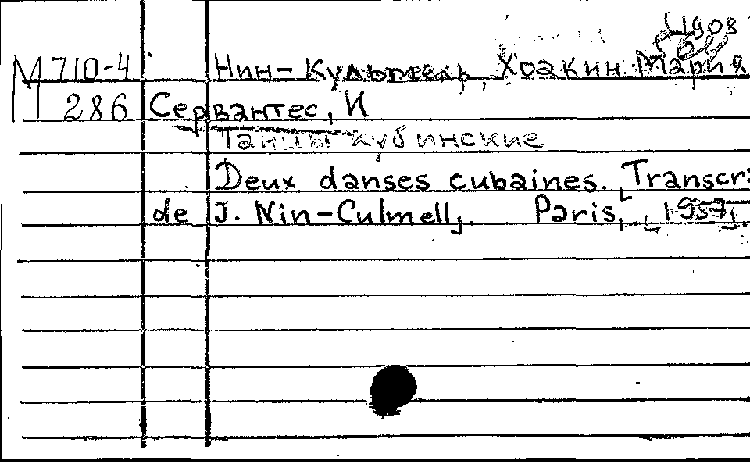 1908
М 710-4 Нин-Кульмель, Хоакин Мария
286 Сервантес, И
Танцы кубинские
Deux danses cubaines. Transcr.
de J. Nin-Culmell. Paris, [1957].